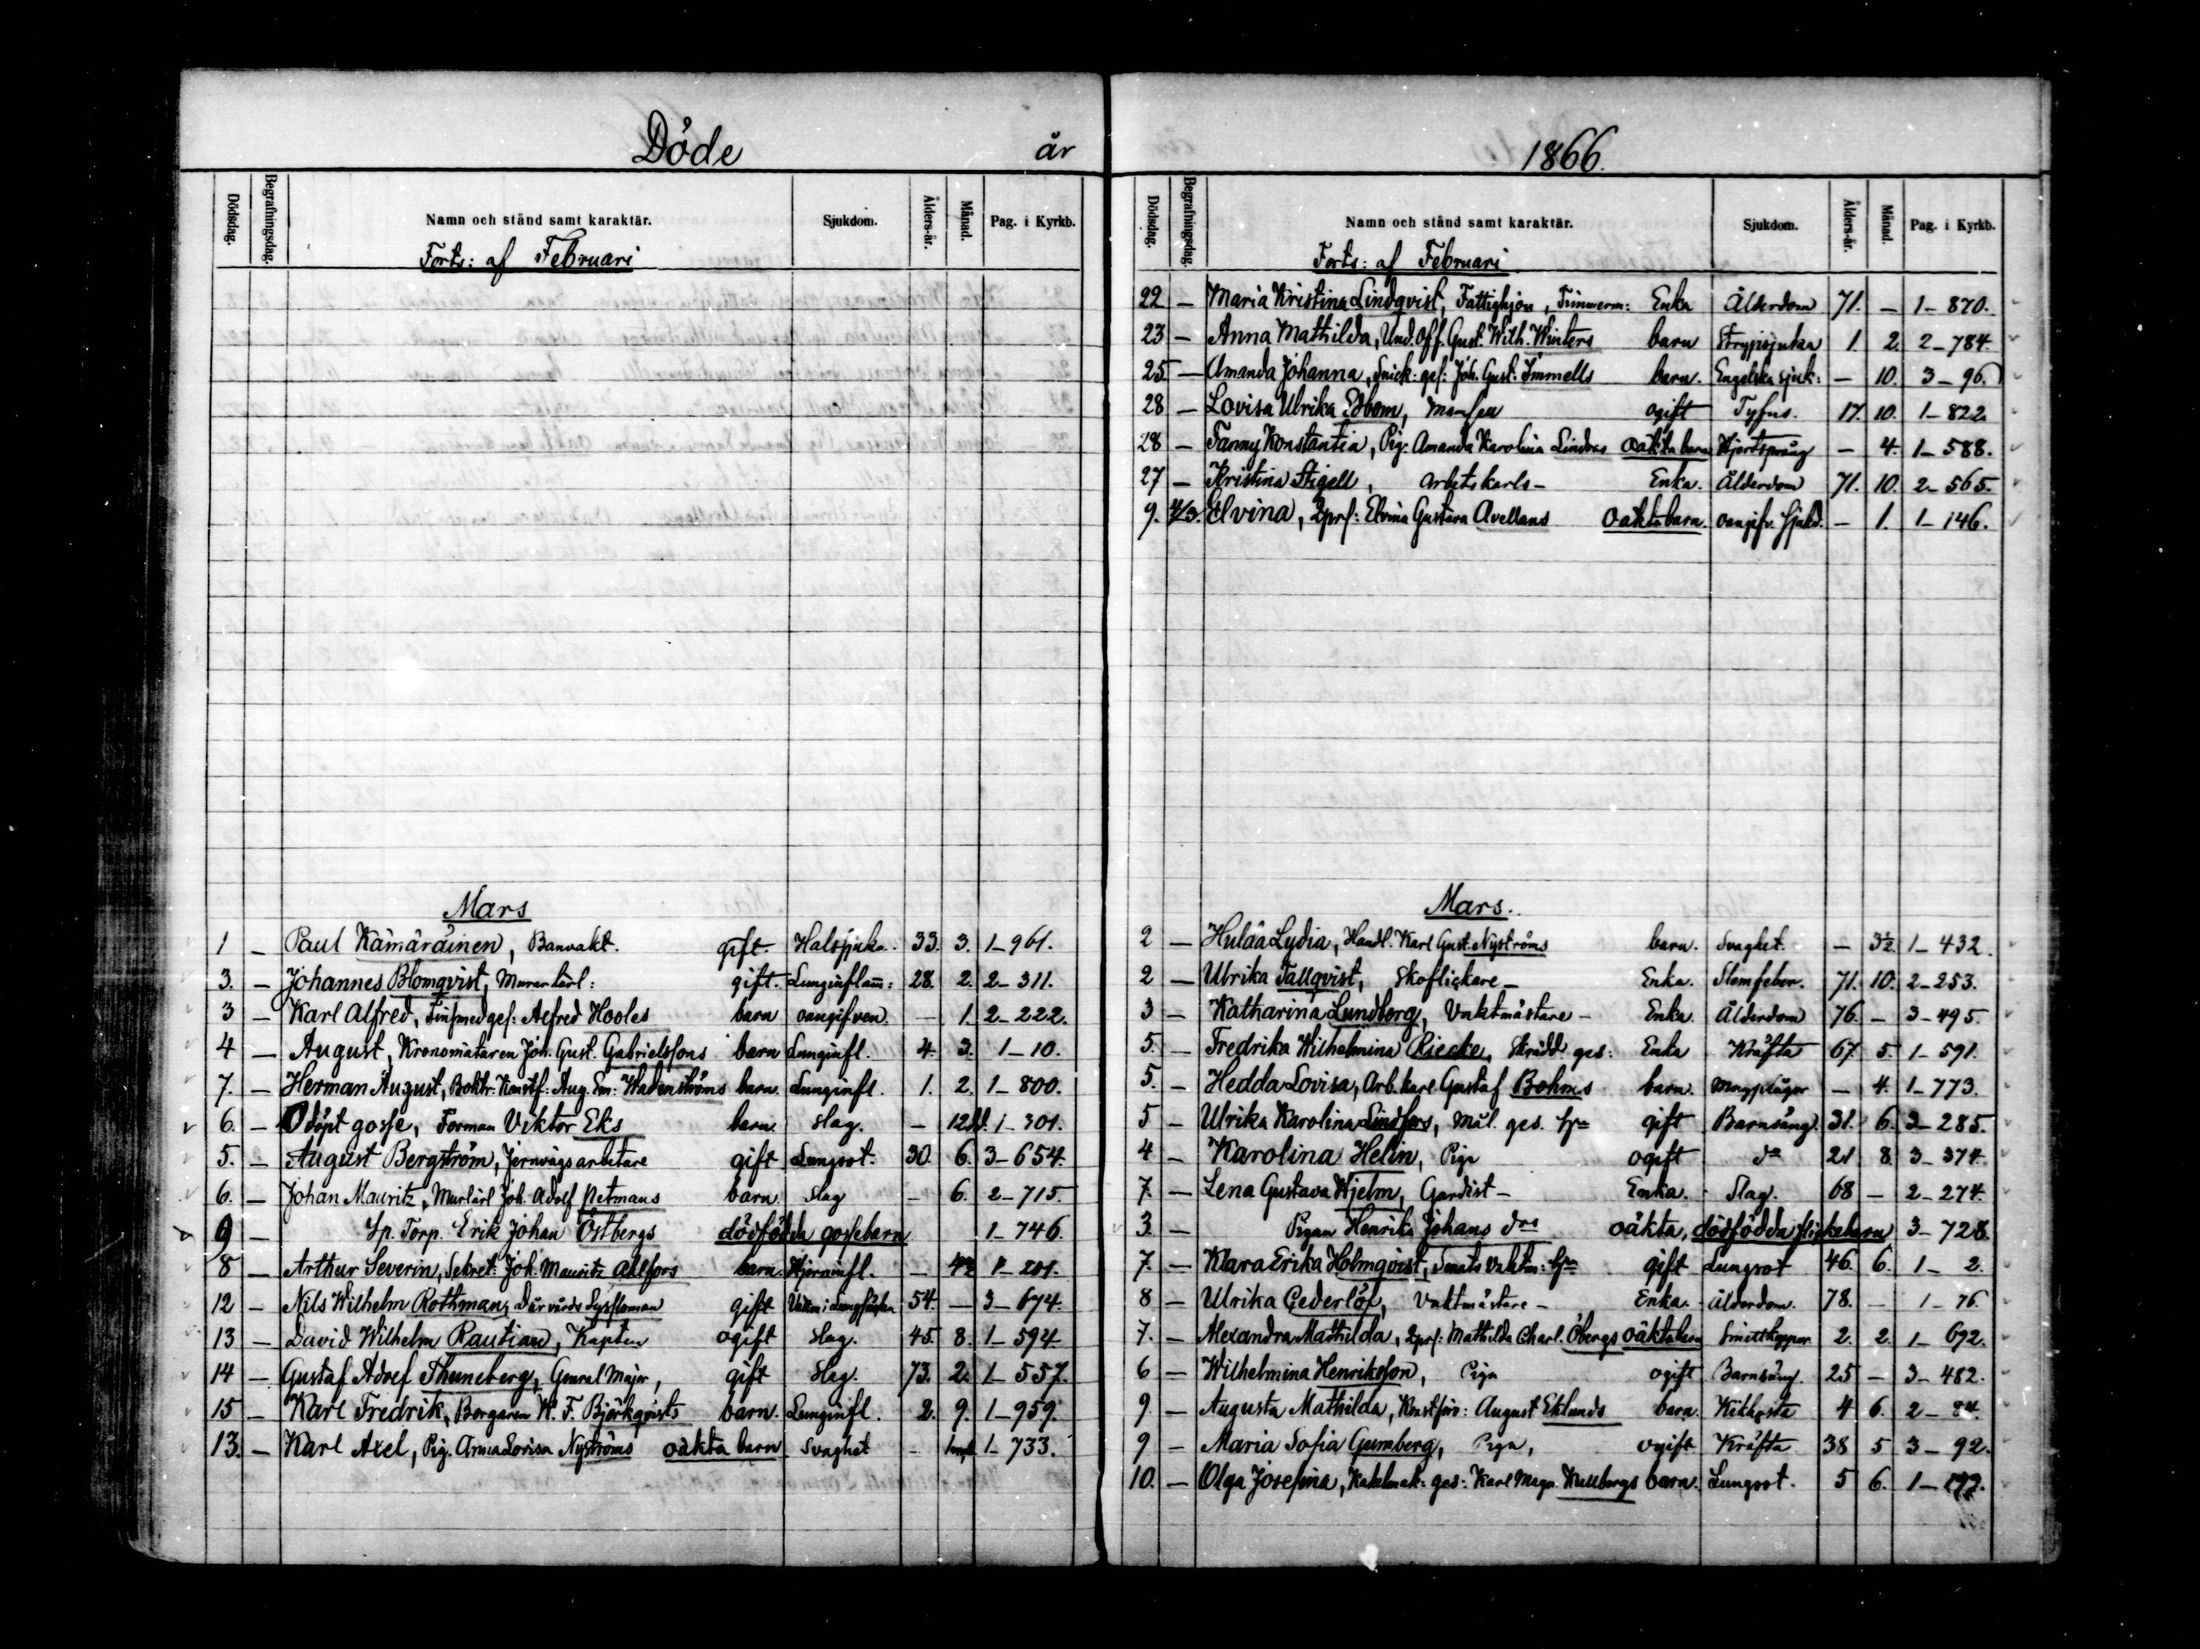 Döde år
Dödsdag. Begrafningsdag. Namn och stånd samt karaktär. Sjukdom. Ålders-år. Månad. Pag. i Kyrkb.
Forts: af Februari
Mars
1 — Paul Kämäräinen, Banvakt. gift. Halssjuka. 33. 3. 1–961.
3. — Johannes Blomqvist, Murarlärl: gift. Lunginflam̄: 28. 2. 2–311.
3 — Karl Alfred, Finsmedges: Alfred Hooles barn oangifven. — 1. 2–222.
4 — August, Kronomätaren Joh. Gust. Gabrielssons barn Lunginfl. 4. 3. 1–10.
7. — Herman August, Boktr. Konstf: Aug. Em: Wadenströms barn. Lunginfl. 1. 2. 1–800.
6. — Odöpt gosse, Forman Viktor Eks barn. Slag. — 12 1–301.
5. — August Bergström, Jernvägsarbetare gift Lungsot. 30. 6. 3–654.
6. — Johan Mauritz, Murlärl Joh. Adolf Retmans barn. Slag — 6. 2–715.
9 — Sp. Torp. Erik Johan Östbergs dödfödda gossebarn 1–746.
8 — Arthur Severin, Sekret: Joh. Mauritz Ahlfors barn. Hjerninfl. — 1–201.
12 — Nils Wilhelm Rothman, gift 54. — 3–674.
13 — David Wilhelm Rautian, Kapten ogift Slag. 45. 8. 1–594.
14 — Gustaf Adolf Thuneberg, General Major, gift Slag. 73. 2. 1–557.
15 — Karl Fredrik, Borgaren W. F. Björkqvists barn. Lunginfl. 2. 9. 1–959.
13. — Karl Axel, Pig. Anna Lovisa Nyströms oäkta barn Svaghet — 1–733.
1866.
Dödsdag. Begrafningsdag. Namn och stånd samt karaktär. Sjukdom. Ålders-år. Månad. Pag. i Kyrkb.
Forts: af Februari
22 — Maria Kristina Lindqvist, Fattighjon, Timmerm: Enka Ålderdom 71. — 1–870.
23 — Anna Mathilda, Und. Off. Gust. Wilh. Winters barn Strypsjuka 1. 2. 2–784.
25 — Amanda Johanna, Snick: ges: Joh. Gust: Immells barn. Engelska sjuk: — 10. 3–96.
28 — Lovisa Ulrika Edbom, Mamsell ogift Tyfus. 17. 10. 1–822.
28 — Fanny Konstantia, Pig. Amanda Karolina Lindros oäkta barn Hjertsprång — 4. 1–588.
27 — Kristina Stigell, Arbetskarls– Enka. Ålderdom 71. 10. 2–565.
9. 4/3. Elvina, Elvina Gustava Avellans oäkta barn. oangifv. sjukd. — 1. 1–146.
Mars.
2 — Hulda Lydia, Handl. Karl Gust. Nyströms barn. Svaghet. — 3½ 1–432.
2 — Ulrika Tallqvist, Skoflickare– Enka. Slemfeber. 71. 10. 2–253.
3 — Katharina Lundberg, Vaktmästare– Enka. Ålderdom 76. — 3–495.
5. — Fredrika Wilhelmina Riecke, Skrädd. ges: Enka Kräfta 67. 5. 1–591.
5. — Hedda Lovisa, Arb. karl Gustaf Bohms barn. Magplågor — 4. 1–773.
5 — Ulrika Karolina Lindfors, Mål. ges. Hu gift Barnsäng 31. 6. 3–285.
4 — Karolina Helin, Piga ogift do 21 8. 3–374.
7. — Lena Gustava Hjelm, Gardist– Enka. Slag. 68 — 2–274.
3 — Pigan Henrika Johans drs oäkta, dödfödda flickebarn 3–728.
7. — Klara Erika Holmqvist, Senats Vaktm: Hu gift Lungsot 46. 6. 1–2.
8 — Ulrika Cederlöf, Vaktmästare– Enka. Ålderdom. 78. — 1–76.
7. — Alexandra Mathilda, Mathilda Charl. Öbergs oäkta barn Smittkoppor 2. 2. 1–692.
6 — Wilhelmina Henriksson, Piga ogift Barnsäng 25 — 3–482.
9. — Augusta Mathilda, Konstförv: August Eklunds barn. Kikhosta 4 6. 2–84.
9 — Maria Sofia Gumberg, Piga, ogift Kräfta 38 5 3–92.
10. — Olga Josefina, Kakelmak: ges: Karl Magn. Kullbergs barn. Lungsot. 5 6. 1–